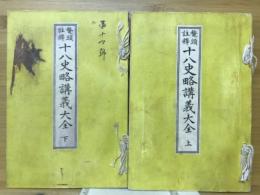 鼇頭
註釋
十八史略講義大全 上
第十四号
鼇頭
註釋
十八史略講義大全 下